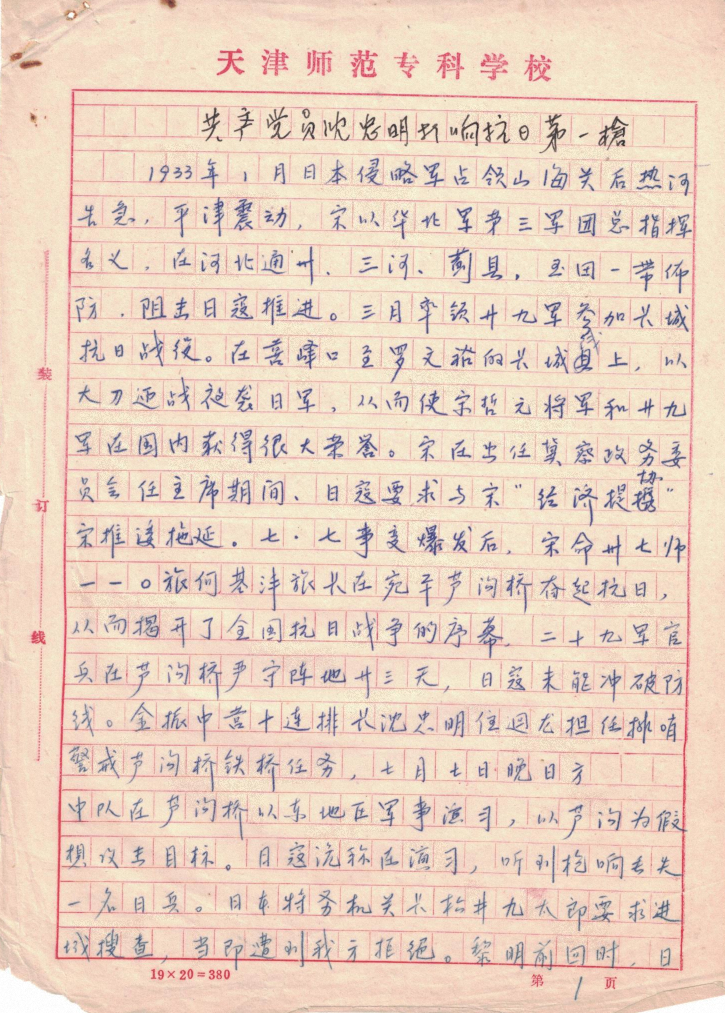 天津师范专科学校
共产党员沈忠明打响抗日第一槍
1933年1月日本侵略军占领山海关后热河
告急，平津震动，宋以华北军第三军团总指挥
名义，在河北通州、三河、蓟县，玉田一带佈
防．阻击日寇推进。三月率领廿九军参加长城
抗日战役。在喜峰口至罗文裕的长城线上，以
大刀迎战夜袭日军，从而使宋哲元将军和廿九
军在国内获得很大荣誉。宋在出任冀察政务委
员会任主席期间、日寇要求与宋“经济提携”
宋推诿拖延。七·七事变爆发后，宋命卅七师
一一〇旅何基沣旅长在宛平芦沟桥奋起抗日，
从而揭开了全国抗日战争的序幕，二十九军官
兵在芦沟桥严守阵地廿三天，日寇未能冲破防
线。金振中营十连排长沈忠明住迴龙担任排哨
警戒芦沟桥铁桥任务，七月七日晚日方
中队在芦沟桥以东地区军事演习，以芦沟为假
想攻击目标。日寇谎称在演习，听到枪响丢失
一名日兵。日本特务机关长松井九太郎要求进
城搜查，当即遭到我方拒绝。黎明前四时，日
装
订
线
19×20=380
第1页